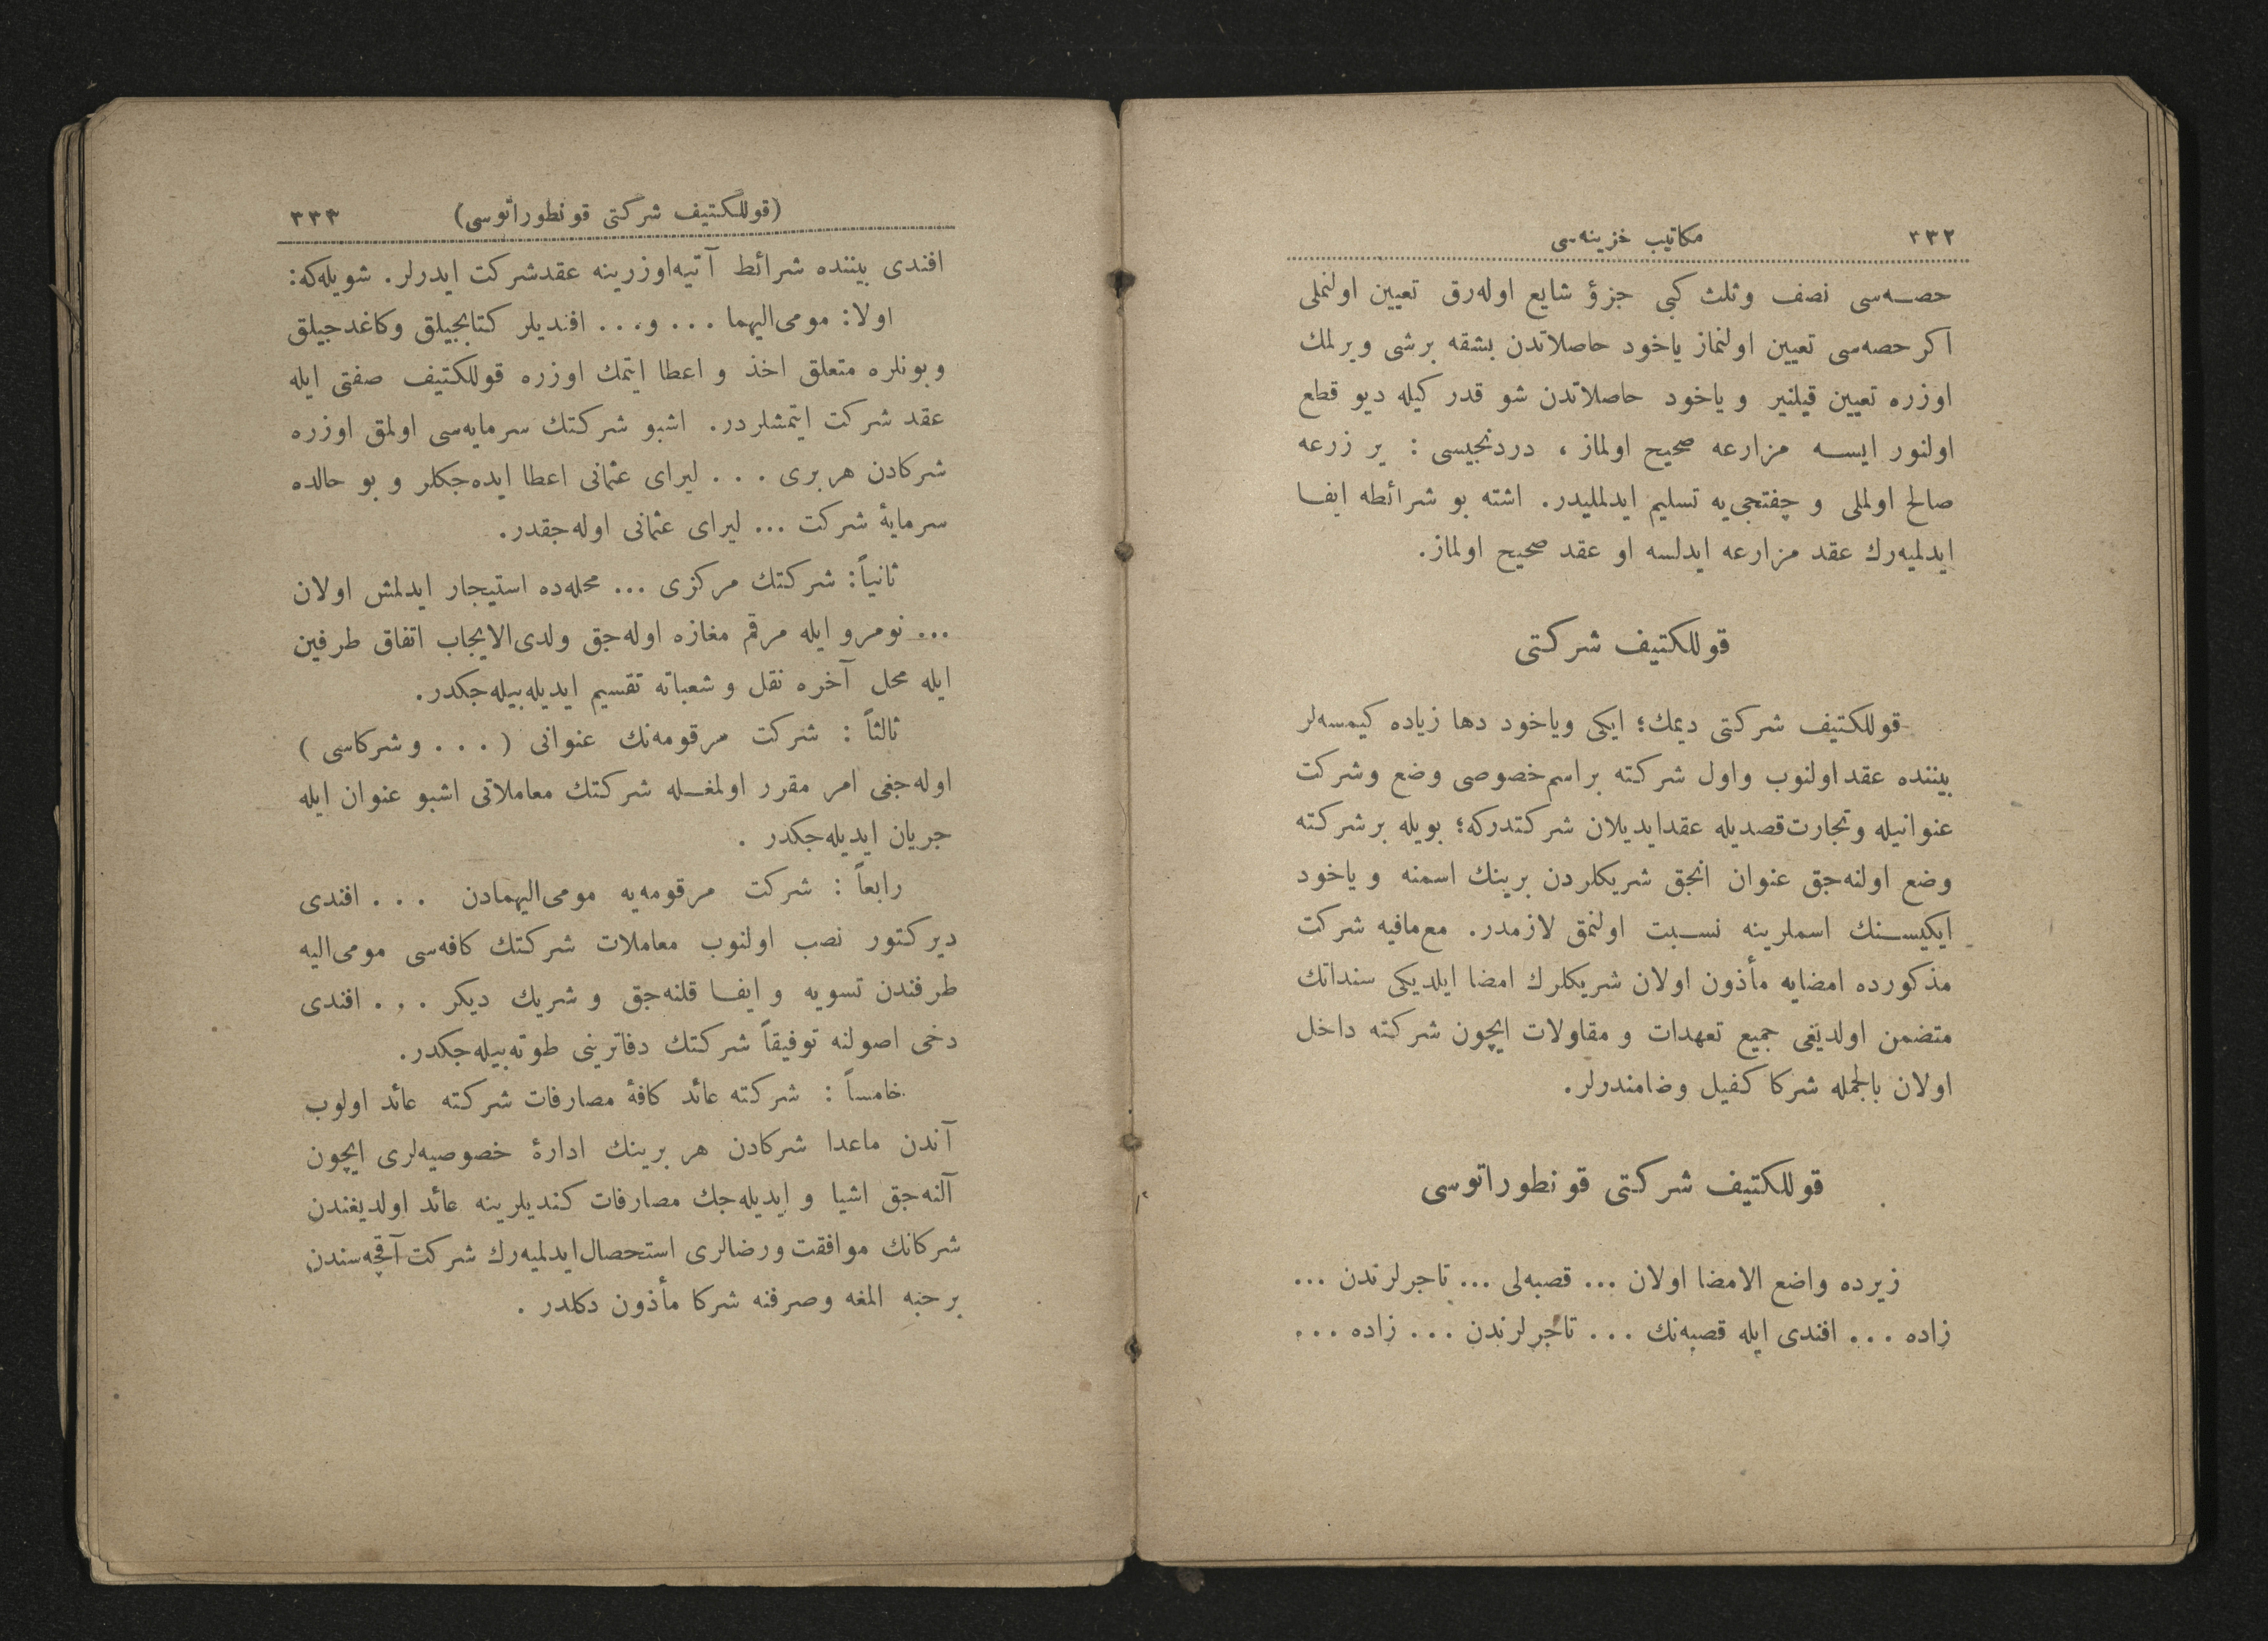 ٣٣٢ مكاتيب خزينه‌سى
حصه‌سى نصف وثلث كبى جزؤ شايع اوله‌رق تعيين اولنملى
اكر حصه‌سى تعيين اولنماز ياخود حاصلاتدن بشقه برشى ويرلمك
اوزره تعيين قيلنير وياخود حاصلاتدن شو قدر كيله ديو قطع
اولنور ايسه مزارعه صحيح اولماز ، دردنجيسى : ير زرعه
صالح اولملى و چفتجى‌يه تسليم ايدلمليدر. اشته بو شرائطه ايفا
ايدلميه‌رك عقد مزارعه ايدلسه او عقد صحيح اولماز.
قوللكتيف شركتى
قوللكتيف شركتى ديمك؛ ايكى وياخود دها زياده كيمسه‌لر
بيننده عقد اولنوب واول شركته براسم خصوصى وضع وشركت
عنوانيله وتجارت قصديله عقدايديلان شركتدركه؛ بويله برشركته
وضع اولنه‌جق عنوان انجق شريكلردن برينك اسمنه وياخود
ايكيسنك اسملرينه نسبت اولنمق لازمدر. مع‌مافيه شركت
مذكورده امضايه مأذون اولان شريكلرك امضا ايلديكى سنداتك
متضمن اولديغى جميع تعهدات و مقاولات ايچون شركته داخل
اولان بالجمله شركا كفيل وضامندرلر.
قوللكتيف شركتى قونطوراتوسى
زيرده واضع الامضا اولان ... قصبه‌لى ... تاجرلرندن ...
زاده ... افندى ايله قصبه‌نك ... تاجرلرندن ... زاده ...
(قوللكتيف شركتى قونطوراتوسى) ٣٣٣
افندى بيننده شرائط آتيه‌اوزرينه عقدشركت ايدرلر. شويله‌كه:
اولا: مومى‌اليهما ... و... افنديلر كتابجيلق وكاغدجيلق
وبونلره متعلق اخذ و اعطا ايتمك اوزره قوللكتيف صفتى ايله
عقد شركت ايتمشلردر. اشبو شركتك سرمايه‌سى اولمق اوزره
شركادن هربرى ... ليراى عثمانى اعطا ايده‌جكلر و بو حالده
سرمايۀ شركت ... ليراى عثمانى اوله‌جقدر.
ثانياً: شركتك مركزى ... محله‌ده استيجار ايدلمش اولان
... نومرو ايله مرقم مغازه اوله‌جق ولدى‌الايجاب اتفاق طرفين
ايله محل آخره نقل و شعباته تقسيم ايديله‌بيله‌جكدر.
ثالثاً : شركت مرقومه‌نك عنوانى (... وشركاسى)
اوله‌جغى امر مقرر اولمغله شركتك معاملاتى اشبو عنوان ايله
جريان ايديله‌جكدر .
رابعاً : شركت مرقومه‌يه مومى‌اليهمادن ... افندى
ديركتور نصب اولنوب معاملات شركتك كافه‌سى مومى‌اليه
طرفندن تسويه و ايفا قلنه‌جق و شريك ديكر ... افندى
دخى اصولنه توفيقاً شركتك دفاترينى طوته‌بيله‌جكدر.
خامساً : شركته عائد كافۀ مصارفات شركته عائد اولوب
آندن ماعدا شركادن هر برينك ادارۀ خصوصيه‌لرى ايچون
آلنه‌جق اشيا و ايديله‌جك مصارفات كنديلرينه عائد اولديغندن
شركانك موافقت ورضالرى استحصال‌ايدلميه‌رك شركت آقچه‌سندن
برحبه المغه وصرفنه شركا مأذون دكلدر .